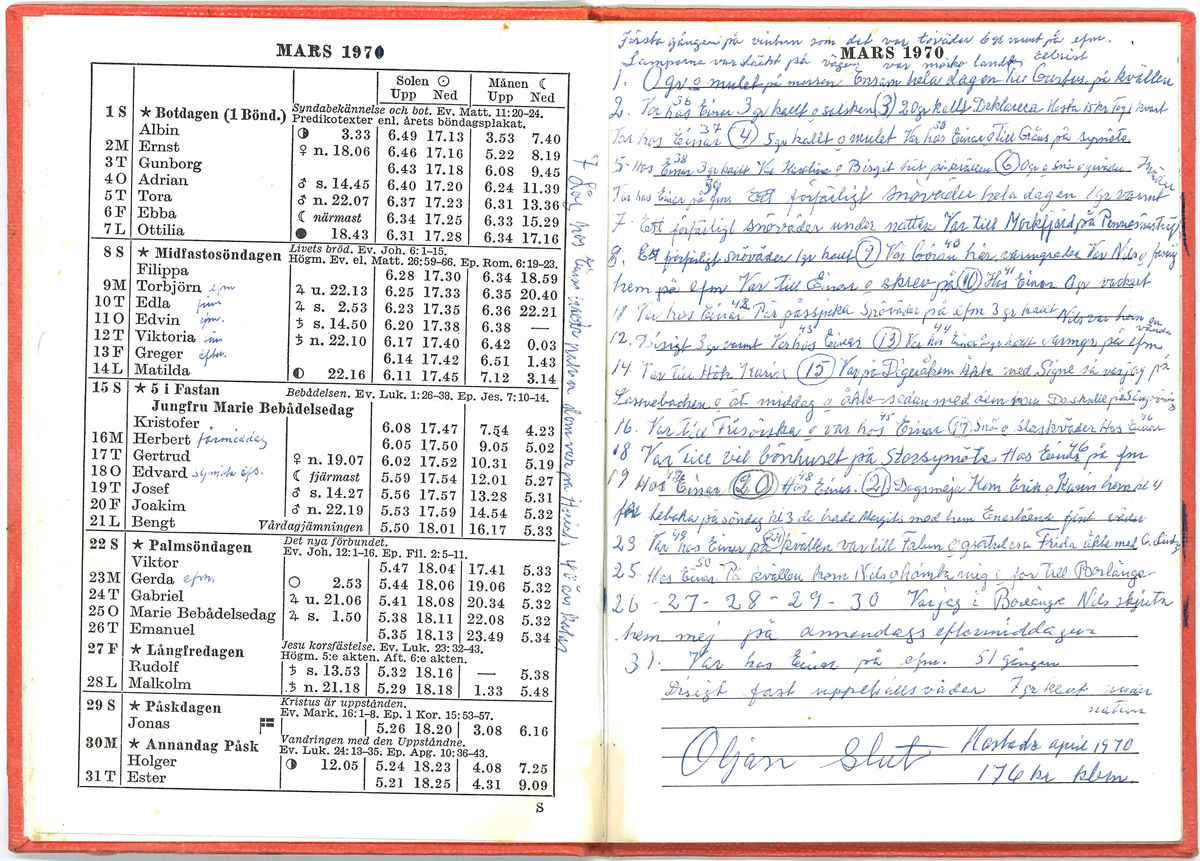 MARS 1970
Solen ☉ Månen ☾
Upp Ned Upp Ned
1 S ★ Botdagen (1 Bönd.) Syndabekännelse och bot. Ev. Matt. 11:20–24.
Predikotexter enl. årets böndagsplakat.
Albin ◑ 3.33 6.49 17.13 3.53 7.40
2 M Ernst ♀ n. 18.06 6.46 17.16 5.22 8.19
3 T Gunborg 6.43 17.18 6.08 9.45
4 O Adrian ♂ s. 14.45 6.40 17.20 6.24 11.39
5 T Tora ♂ n. 22.07 6.37 17.23 6.31 13.36
6 F Ebba ☾ närmast 6.34 17.25 6.33 15.29
7 L Ottilia ● 18.43 6.31 17.28 6.34 17.16
8 S ★ Midfastosöndagen Livets bröd. Ev. Joh. 6:1–15.
Högm. Ev. el. Matt. 26:59–66. Ep. Rom. 6:19–23.
Filippa 6.28 17.30 6.34 18.59
9 M Torbjörn efm ♃ u. 22.13 6.25 17.33 6.35 20.40
10 T Edla ♃ s. 2.53 6.23 17.35 6.36 22.21
11 O Edvin efm. ♄ s. 14.50 6.20 17.38 6.38 —
12 T Viktoria ♄ n. 22.10 6.17 17.40 6.42 0.03
13 F Greger eftr. 6.14 17.42 6.51 1.43
14 L Matilda ◐ 22.16 6.11 17.45 7.12 3.14
15 S ★ 5 i Fastan Bebådelsen. Ev. Luk. 1:26–38. Ep. Jes. 7:10–14.
Jungfru Marie Bebådelsedag
Kristofer 6.08 17.47 7.54 4.23
16 M Herbert förmiddag 6.05 17.50 9.05 5.02
17 T Gertrud ♀ n. 19.07 6.02 17.52 10.31 5.19
18 O Edvard ☾ fjärmast 5.59 17.54 12.01 5.27
19 T Josef ♂ s. 14.27 5.56 17.57 13.28 5.31
20 F Joakim ♂ n. 22.19 5.53 17.59 14.54 5.32
21 L Bengt Vårdagjämningen 5.50 18.01 16.17 5.33
22 S ★ Palmsöndagen Det nya förbundet.
Ev. Joh. 12:1–16. Ep. Fil. 2:5–11.
Viktor 5.47 18.04 17.41 5.33
23 M Gerda efm. ○ 2.53 5.44 18.06 19.06 5.32
24 T Gabriel ♃ u. 21.06 5.41 18.08 20.34 5.32
25 O Marie Bebådelsedag ♃ s. 1.50 5.38 18.11 22.08 5.32
26 T Emanuel 5.35 18.13 23.49 5.34
27 F ★ Långfredagen Jesu korsfästelse. Ev. Luk. 23: 32–43.
Högm. 5:e akten. Aft. 6:e akten.
Rudolf ♄ s. 13.53 5.32 18.16 — 5.38
28 L Malkolm ♄ n. 21.18 5.29 18.18 1.33 5.48
29 S ★ Påskdagen Kristus är uppstånden.
Ev. Mark. 16:1–8. Ep. 1 Kor. 15: 53–57.
Jonas 5.26 18.20 3.08 6.16
30 M ★ Annandag Påsk Vandringen med den Uppståndne.
Ev. Luk. 24: 13–35. Ep. Apg. 10: 36–43.
Holger ◑ 12.05 5.24 18.23 4.08 7.25
31 T Ester 5.21 18.25 4.31 9.09
S
7 Låg hos Einar medan dom var på 40 års
Första gången på vintern som det var töväder 6 gr varmt på efm.
MARS 1970
Lamporna var släckt på vägen var mörka
1. 0 gr o mulet på morron Ensam hela dagen Till på kvällen
2. Var hos 36 Einar 3 gr kallt o solsken (3) 20 gr kallt Deklarera
Var hos 37 Einar (4) 5 gr kallt o mulet Var hos Einar o till på symöte
5. Hos 38 Einar 3 gr kallt Var Karolina o Birgit hit på kvällen (6) 0 gr o snö
Var hos Einar på fm. 39 förfärligt snöväder hela dagen 1 gr varmt
7. Ett förfärligt snöväder under natten Var till Morkfjärd på
8. Ett förfärligt snöväder 1 gr kallt (9) Var Göran här, Var Nils o
hem på efm Var till Einar o skrev på (10) Hos 41 Einar 0 gr vackert
11 Var hos Einar 42 Snöväder på efm 3 gr kallt Nils var hem en
12. Disigt 3 gr varmt Var hos Einar 43 (13) Var hos Einar 44 på efm
14. Var till Hök Karin (15) Var på Digeråkern Åkte med Signe så var jag på
o åt middag o åkte sedan med dem hem
16. Var till Frisörska o var hos 45 Einar (17) Snö o Slaskväder Hos Einar
18 Var till vel bönhuset på Storsymöte Hos Einar 46 på fm
19 Hos 47 Einar (20) Hos 48 Einar. (21) Dagsmeja Kom Erik o Karin hem
på söndag kl 3 de hade Margits med hem fint väder
23 Var 49 hos Einar på (24) kvällen var till Falun o Frida åkte med
25. Hos 50 Einar På kvällen kom Nils o hämta mig i for till Borlänge
26 - 27 - 28 - 29 - 30 Var jag i Borlänge Nils skjuta
hem mej på annandags eftermiddagen
31. Var hos Einar på efm. 51 gången
Disigt fast uppehållsväder 7 gr kallt under
natten
Oljan Slut april 1970
176 kr kbm.